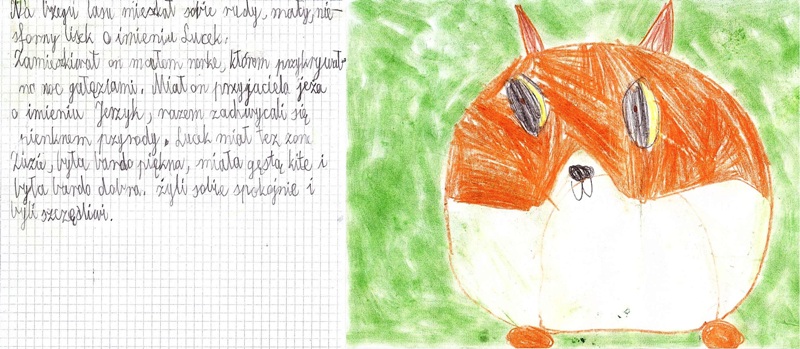 Na brzegu lasu mieszkał sobie rudy, mały, nie-
sforny lisek o imieniu Lucek.
Zamieszkiwał on małom norke, którom przykrywał
na noc gałęziami. Miał on przyjaciela jeża
o imieniu Jerzyk, razem zachwycali się
pienknem przyrody. Lucek miał też żone
Zuzie, była bardo piękna, miała gęstą kite i
była bardo dobra. żyli sobie spokojnie i
byli szczęśliwi.